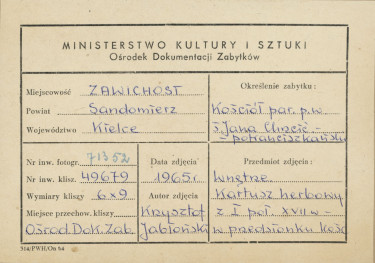 MINISTERSTWO KULTURY I SZTUKI
Ośrodek Dokumentacji Zabytków
Miejscowość ZAWICHOST
Powiat Sandomierz
Województwo Kielce
Określenie zabytku:
Kościół par. p.w.
ś. Jana Chrzcic. -
pofranciszkański
Nr inw. fotogr. 71352
Nr inw. klisz. 49679
Wymiary kliszy 6x9
Miejsce przechow. kliszy
Ośrod. Dok. Zab.
Data zdjęcia
1965 r.
Autor zdjęcia
Krzysztof
Jabłoński
Przedmiot zdjęcia:
wnętrze.
Kartusz herbowy
z I poł. XVII w -
w przedsionku kośc
514/PWH/Om 64